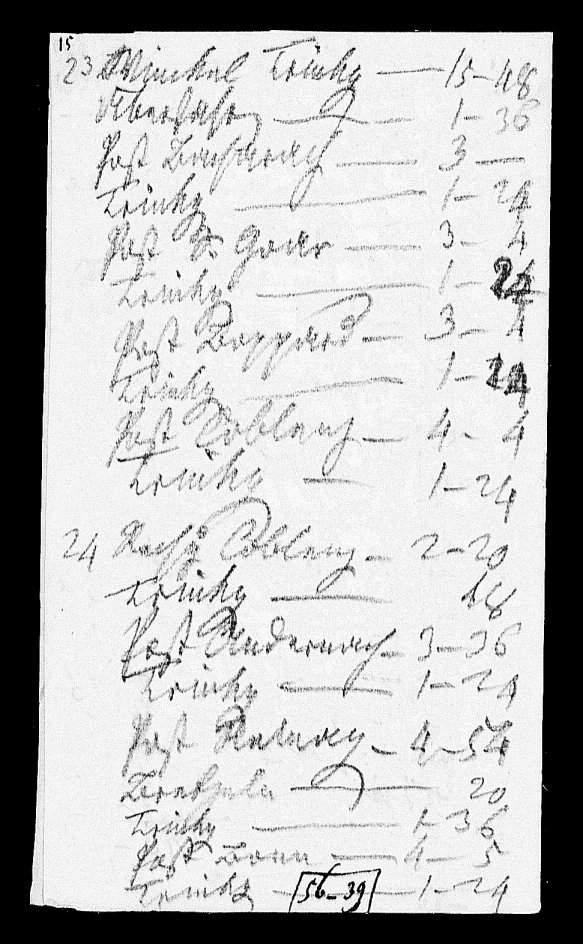 15
23 Winckel Trinkg — 15 – 48
Überfahrt — 1 – 36
Post Bacharach — 3 —
Trinkg — 1 – 24
Post St Goar — 3 – 4
Trinkg — 1 – 24
Post Boppard — 3 – 4
Trinkg — 1 – 24
Post Coblenz — 4 – 4
Trinkg — 1 – 24
24 Rechg Coblenz – 2 – 20
Trinkg — 48
Post Andernach – 3 – 36
Trinkg — 1 – 24
Post Remagen – 4 – 54
20
Trinkg — 1 36
Post Bonn — 4 – 5
Trinkg — 56 – 39 — 1 – 24